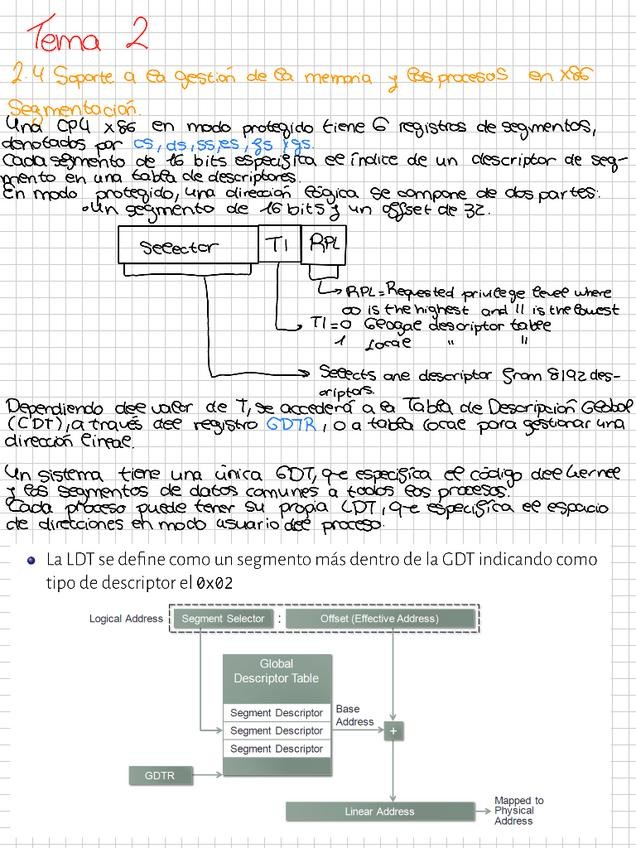 Tema 2
2.4 Soporte a la gestión de la memoria y los procesos en x86
Segmentación.
Una CPU x86 en modo protegido tiene 6 registros de segmentos,
denotados por cs, ds, ss, es, fs y gs.
Cada segmento de 16 bits especifica el índice de un descriptor de seg-
mento en una tabla de descriptores.
En modo protegido, una dirección lógica se compone de dos partes:
•Un segmento de 16 bits y un offset de 32.
Selector TI RPL
RPL = Requested privilege level where
00 is the highest and 11 is the lowest
TI = 0 Global descriptor table
1 Local " "
Selects one descriptor from 8192 des-
criptors.
Dependiendo del valor de T, se accederá a la Tabla de Descripción Global
(GDT), a través del registro GDTR, o a tabla local para gestionar una
dirección lineal.
Un sistema tiene una única GDT, que especifica el código del kernel
y los segmentos de datos comunes a todos los procesos.
Cada proceso puede tener su propia LDT, que especifica el espacio
de direcciones en modo usuario del proceso.
• La LDT se define como un segmento más dentro de la GDT indicando como
tipo de descriptor el 0x02
Logical Address Segment Selector : Offset (Effective Address)
Global
Descriptor Table
Segment Descriptor
Segment Descriptor
Segment Descriptor
Base
Address
+
GDTR
Linear Address
Mapped to
Physical
Address